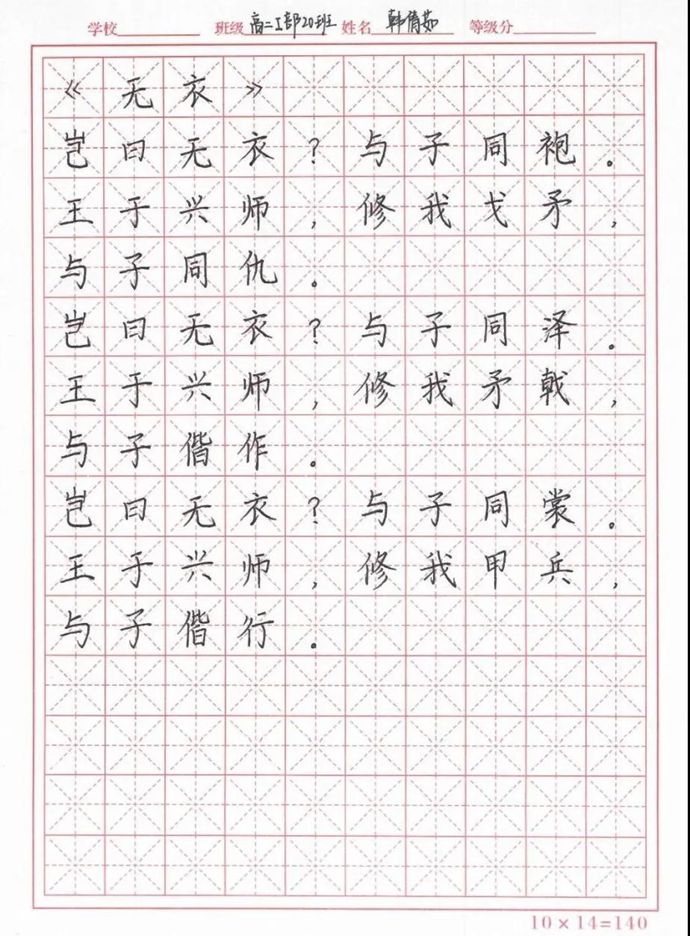 学校 班级 高二I部20班 姓名 韩倩茹 等级分
《无衣》
岂曰无衣？与子同袍。
王于兴师，修我戈矛，
与子同仇。
岂曰无衣？与子同泽。
王于兴师，修我矛戟，
与子偕作。
岂曰无衣？与子同裳。
王于兴师，修我甲兵，
与子偕行。
10×14=140